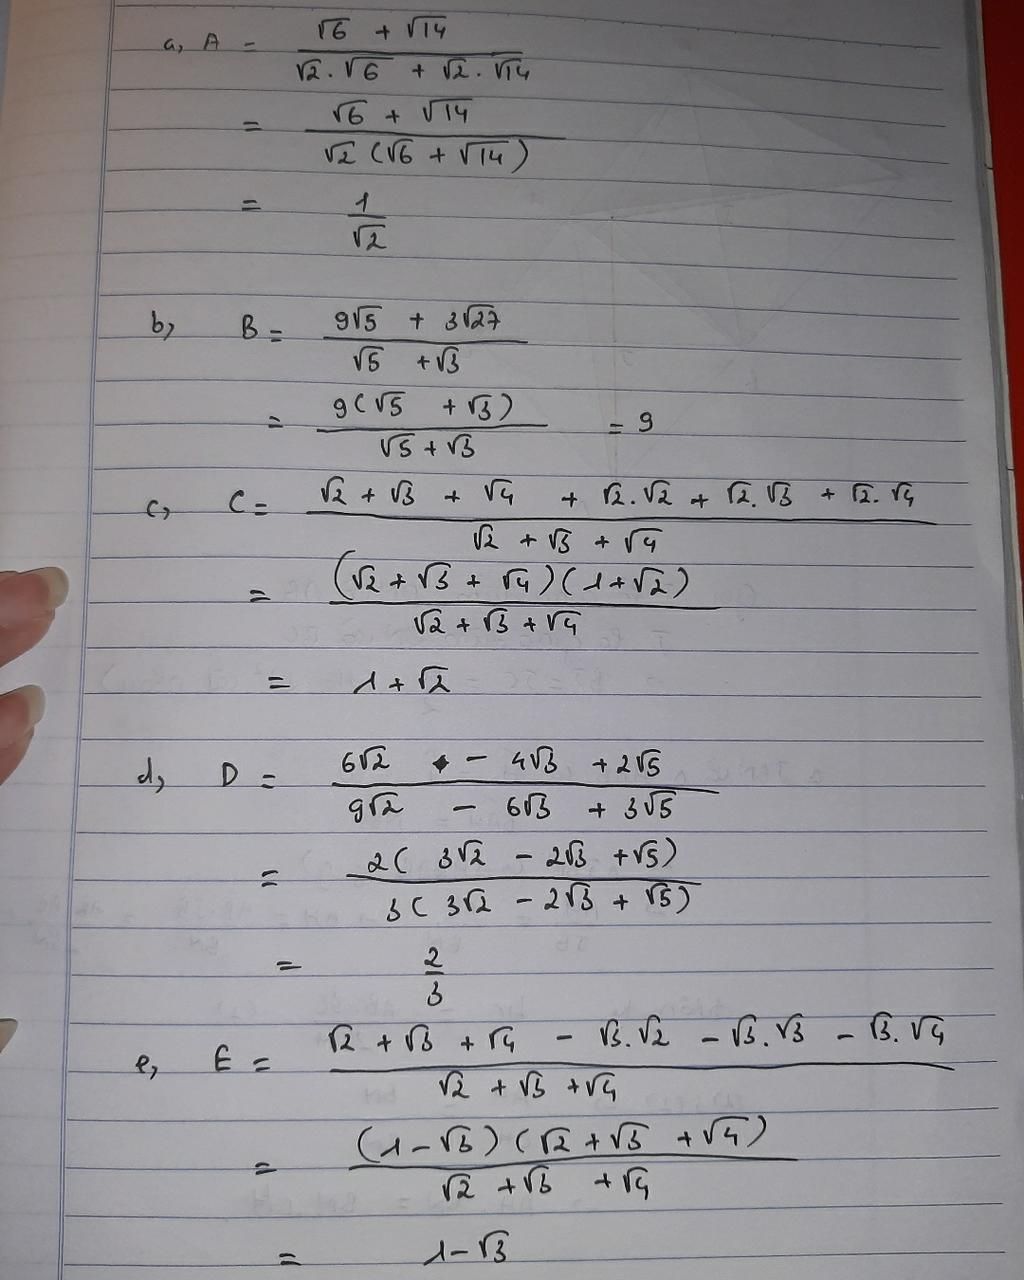 a, A = (√6 + √14) / (√2.√6 + √2.√14)
= (√6 + √14) / (√2 (√6 + √14))
= 1 / √2
b, B = (9√5 + 3√27) / (√5 + √3)
= 9(√5 + √3) / (√5 + √3) = 9
c, C = (√2 + √3 + √4 + √2.√2 + √2.√3 + √2.√4) / (√2 + √3 + √4)
= (√2 + √3 + √4)(1 + √2) / (√2 + √3 + √4)
= 1 + √2
d, D = (6√2 - 4√3 + 2√5) / (9√2 - 6√3 + 3√5)
= 2(3√2 - 2√3 + √5) / 3(3√2 - 2√3 + √5)
= 2 / 3
e, E = (√2 + √3 + √4 - √3.√2 - √3.√3 - √3.√4) / (√2 + √3 + √4)
= (1 - √3)(√2 + √3 + √4) / (√2 + √3 + √4)
= 1 - √3